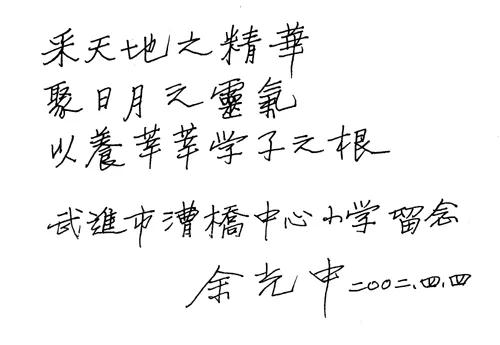 采天地之精華
聚日月之靈氣
以養莘莘学子之根
武進市漕橋中心小学留念
余光中二〇〇二.四.四